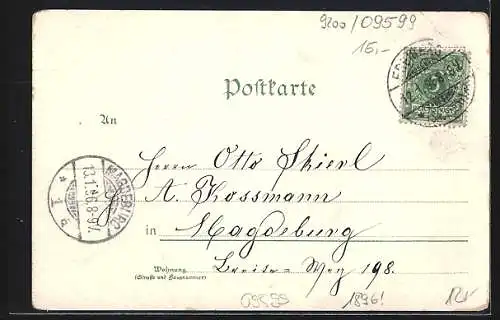 9200/09599
15,-
Postkarte
An
Herrn Otto Skierl
A. Kossmann
in Magdeburg
Wohnung
(Straße und Hausnummer)
Breite-Weg 198.
MAGDEBURG
13.1.96.8-9V.
* 1 b
09599
1896!
12,-